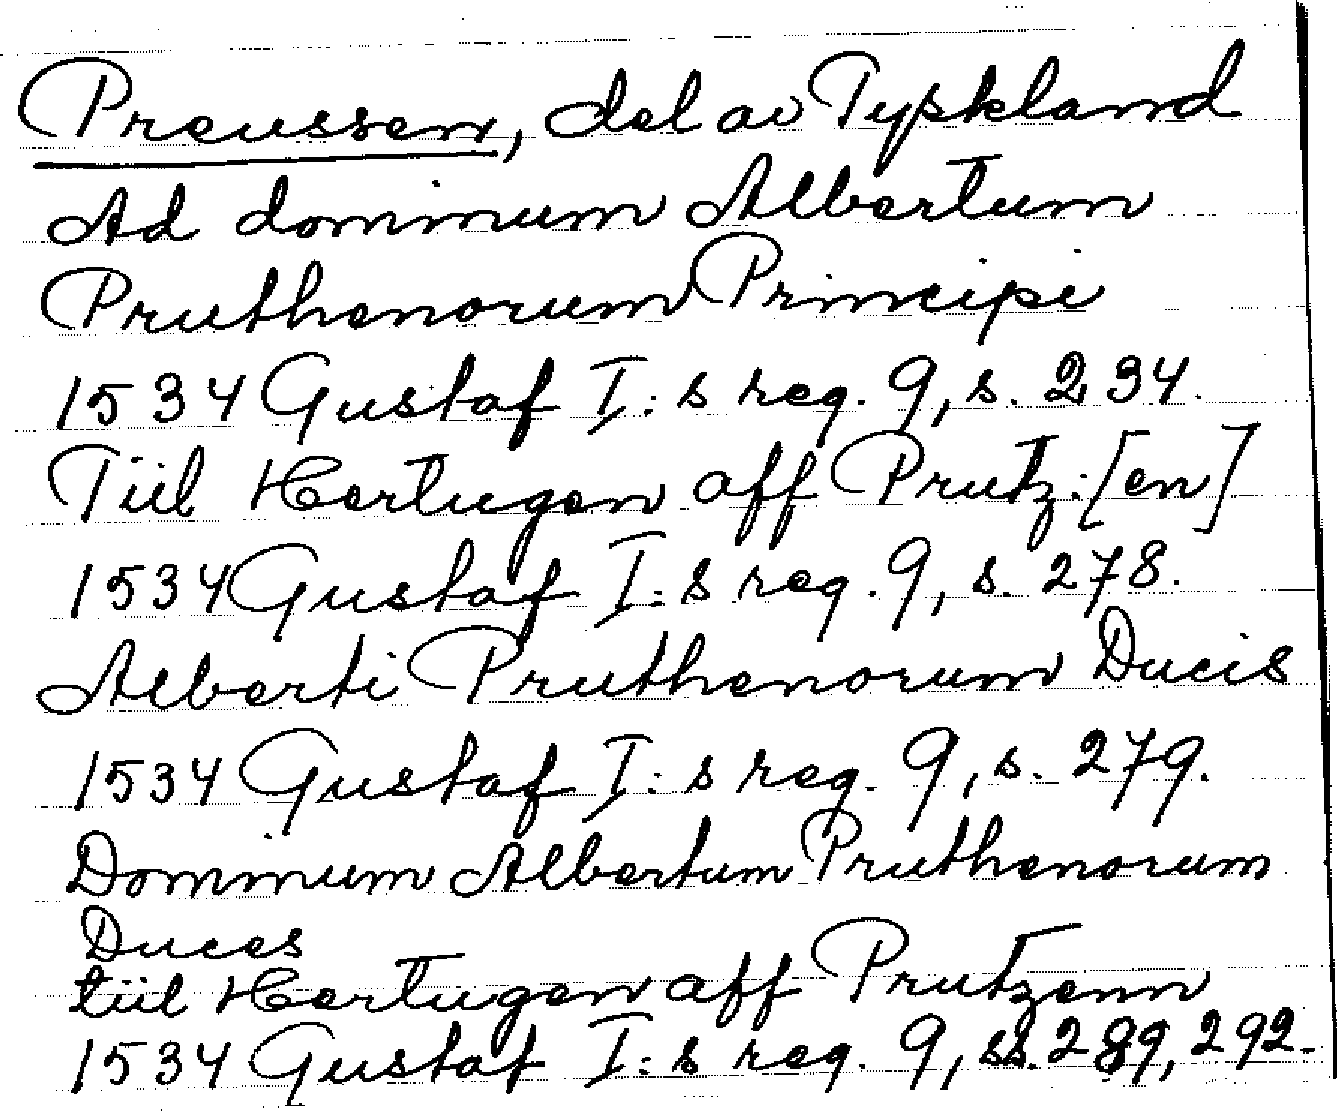 Preussen, del av Tyskland
Ad dominum Albertum
Pruthenorum Principi
1534 Gustaf I:s reg. 9, s. 234.
Tiil Hertugen aff Prutz:[en]
1534 Gustaf I:s reg. 9, s. 278.
Alberti Pruthenorum Ducis
1534 Gustaf I:s reg. 9, s. 279.
Dominum Albertum Pruthenorum
Duces
tiil Hertugen aff Prutzenn
1534 Gustaf I:s reg. 9, ss. 289, 292.